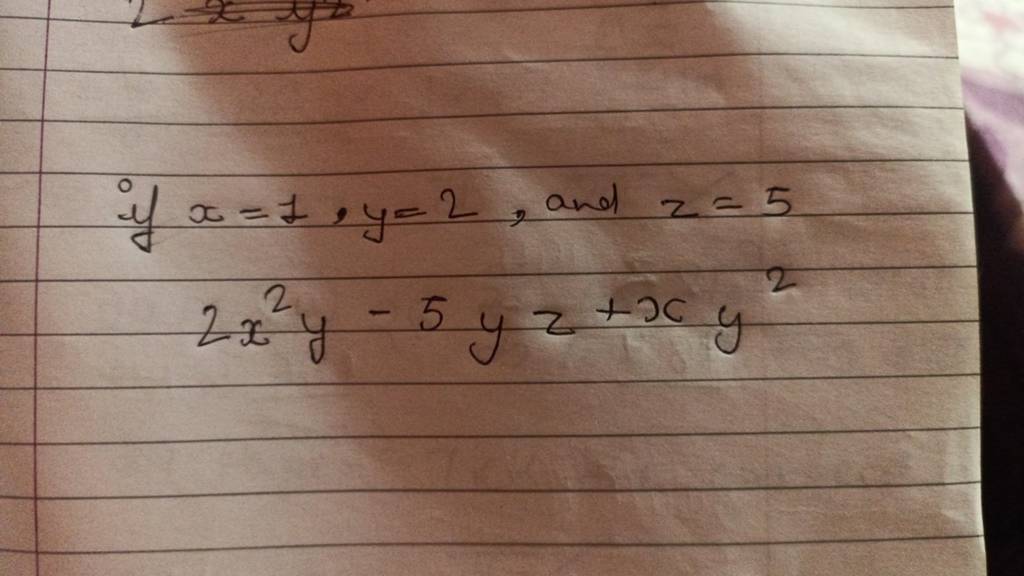 if x = 1, y = 2, and z = 5
2x²y - 5yz + xy²